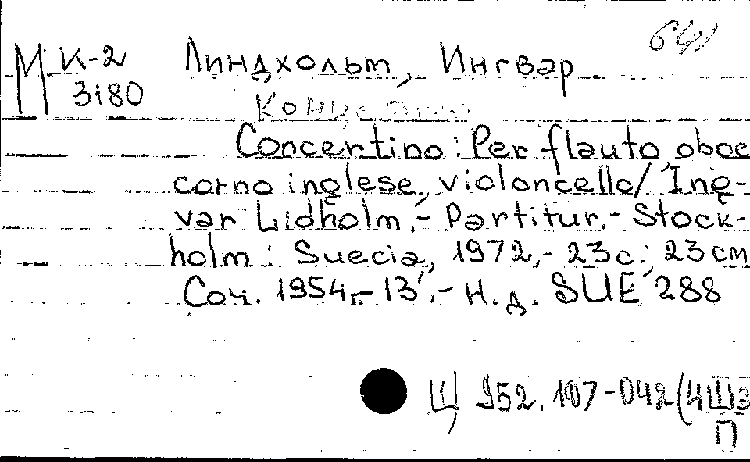 М К-2 Линдхольм, Ингвар
3180
Concertino: Per flauto, oboe
corno inglese, violoncello/ Ing-
var Lidholm.- Partitur.- Stock-
holm: Suecia, 1972.- 23с.; 23см
Соч. 1954г.- 13'.- Н.д. SUE 288
Щ 952.107-042(4Шв
П